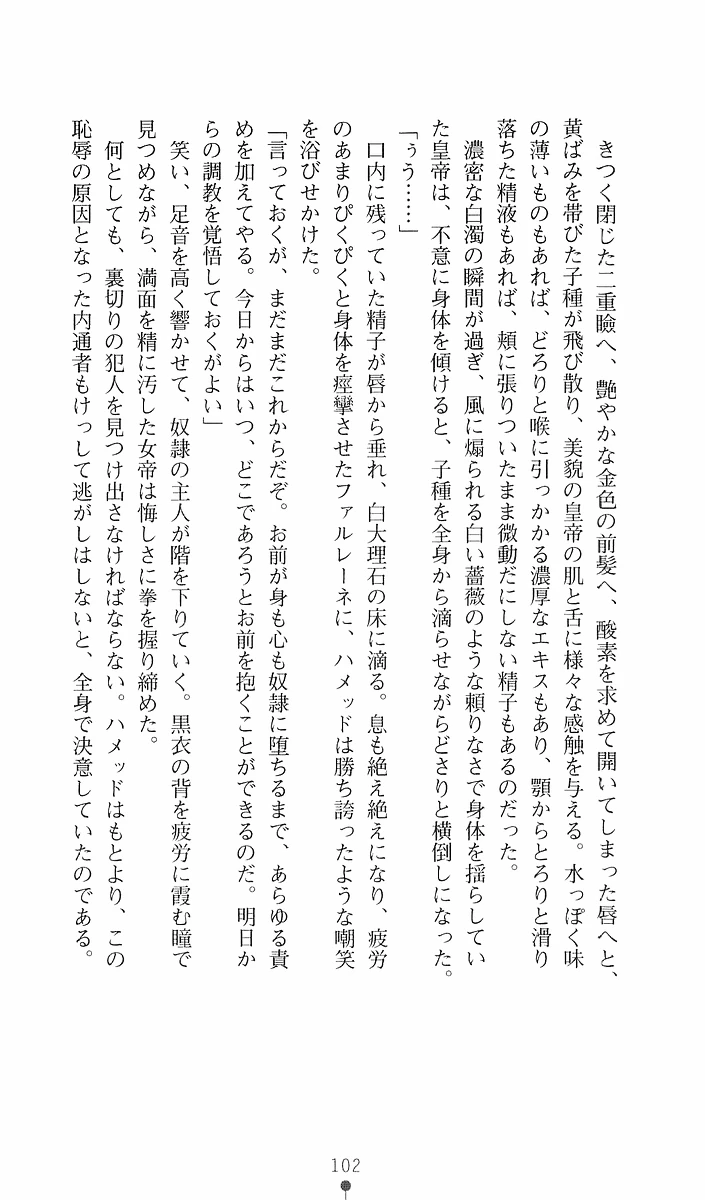 きつく閉じた二重瞼へ、艶やかな金色の前髪へ、酸素を求めて開いてしまった唇へと、
黄ばみを帯びた子種が飛び散り、美貌の皇帝の肌と舌に様々な感触を与える。水っぽく味
の薄いものもあれば、どろりと喉に引っかかる濃厚なエキスもあり、顎からとろりと滑り
落ちた精液もあれば、頬に張りついたまま微動だにしない精子もあるのだった。
濃密な白濁の瞬間が過ぎ、風に煽られる白い薔薇のような頼りなさで身体を揺らしてい
た皇帝は、不意に身体を傾けると、子種を全身から滴らせながらどさりと横倒しになった。
「ぅう……」
口内に残っていた精子が唇から垂れ、白大理石の床に滴る。息も絶え絶えになり、疲労
のあまりぴくぴくと身体を痙攣させたファルレーネに、ハメッドは勝ち誇ったような嘲笑
を浴びせかけた。
「言っておくが、まだまだこれからだぞ。お前が身も心も奴隷に堕ちるまで、あらゆる責
めを加えてやる。今日からはいつ、どこであろうとお前を抱くことができるのだ。明日か
らの調教を覚悟しておくがよい」
笑い、足音を高く響かせて、奴隷の主人が階を下りていく。黒衣の背を疲労に霞む瞳で
見つめながら、満面を精に汚した女帝は悔しさに拳を握り締めた。
何としても、裏切りの犯人を見つけ出さなければならない。ハメッドはもとより、この
恥辱の原因となった内通者もけっして逃がしはしないと、全身で決意していたのである。
102